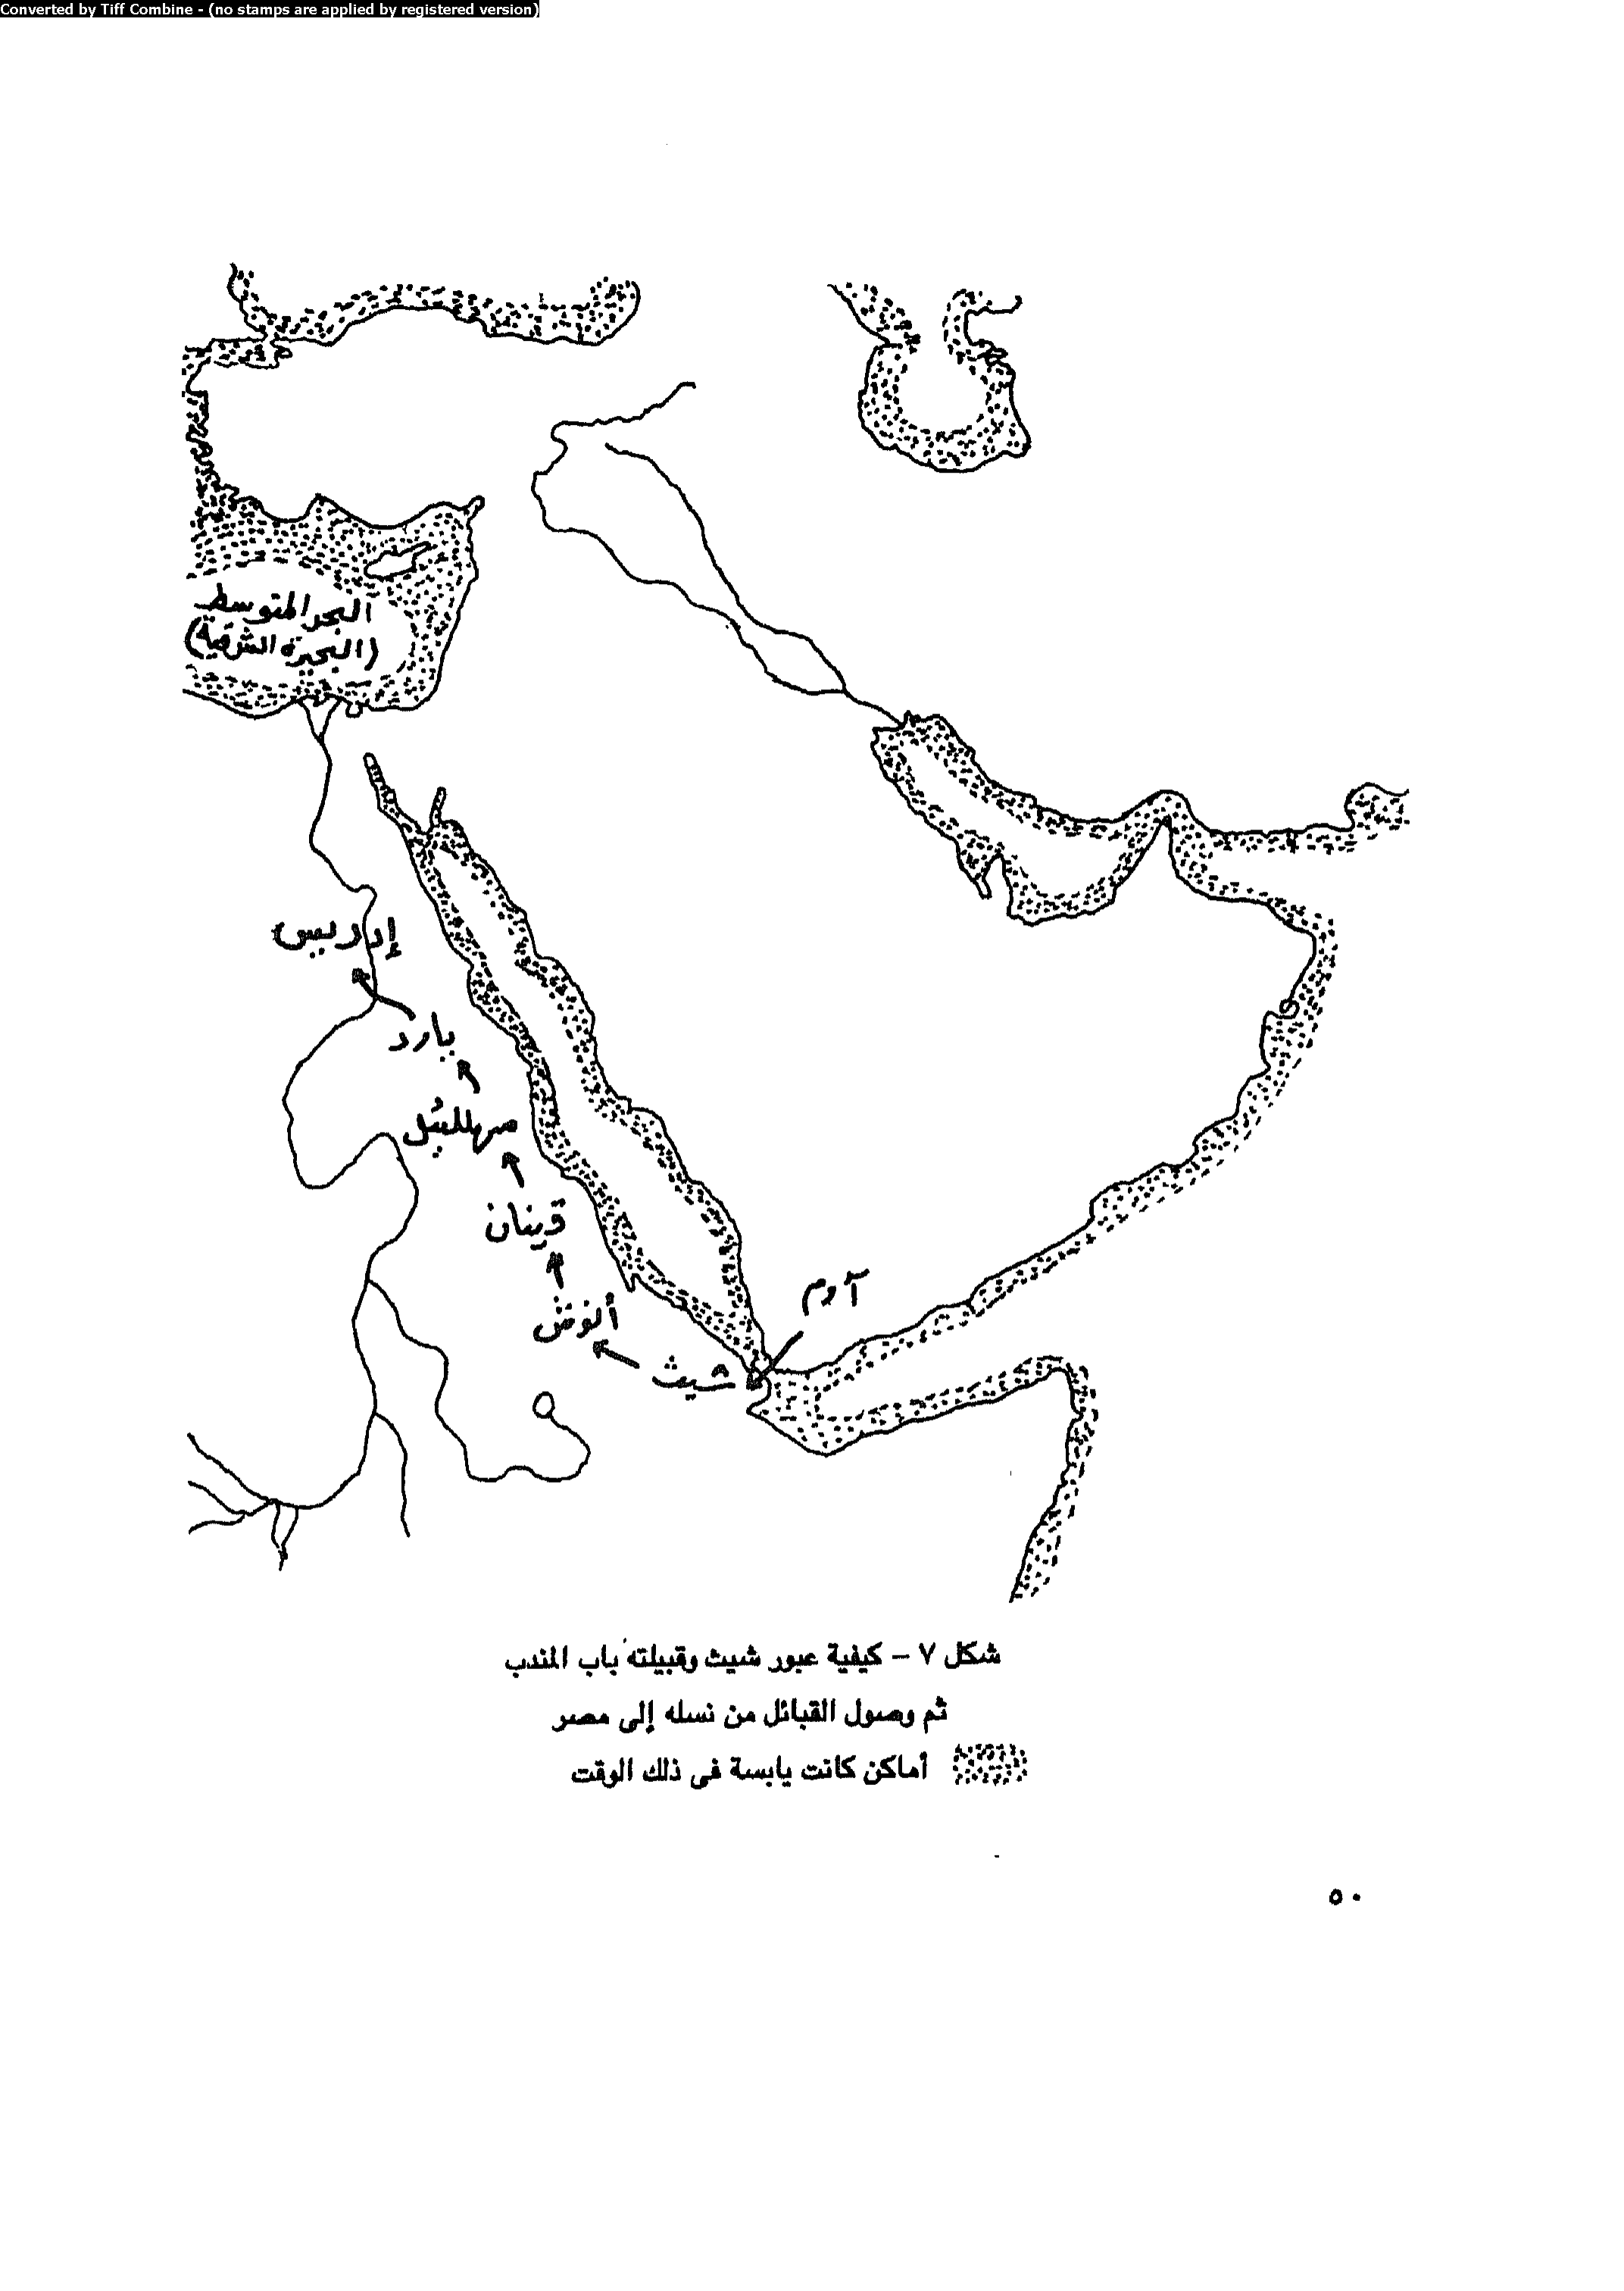 Converted by Tiff Combine - (no stamps are applied by registered version)
البحر المتوسط
(البحيرة الشرقية)
إدريس
يارد
مهللئيل
قينان
أنوش
شيث
آدم
شكل ٧ – كيفية عبور شيث وقبيلته باب المندب
ثم وصول القبائل من نسله إلى مصر
أماكن كانت يابسة فى ذلك الوقت
٥٠